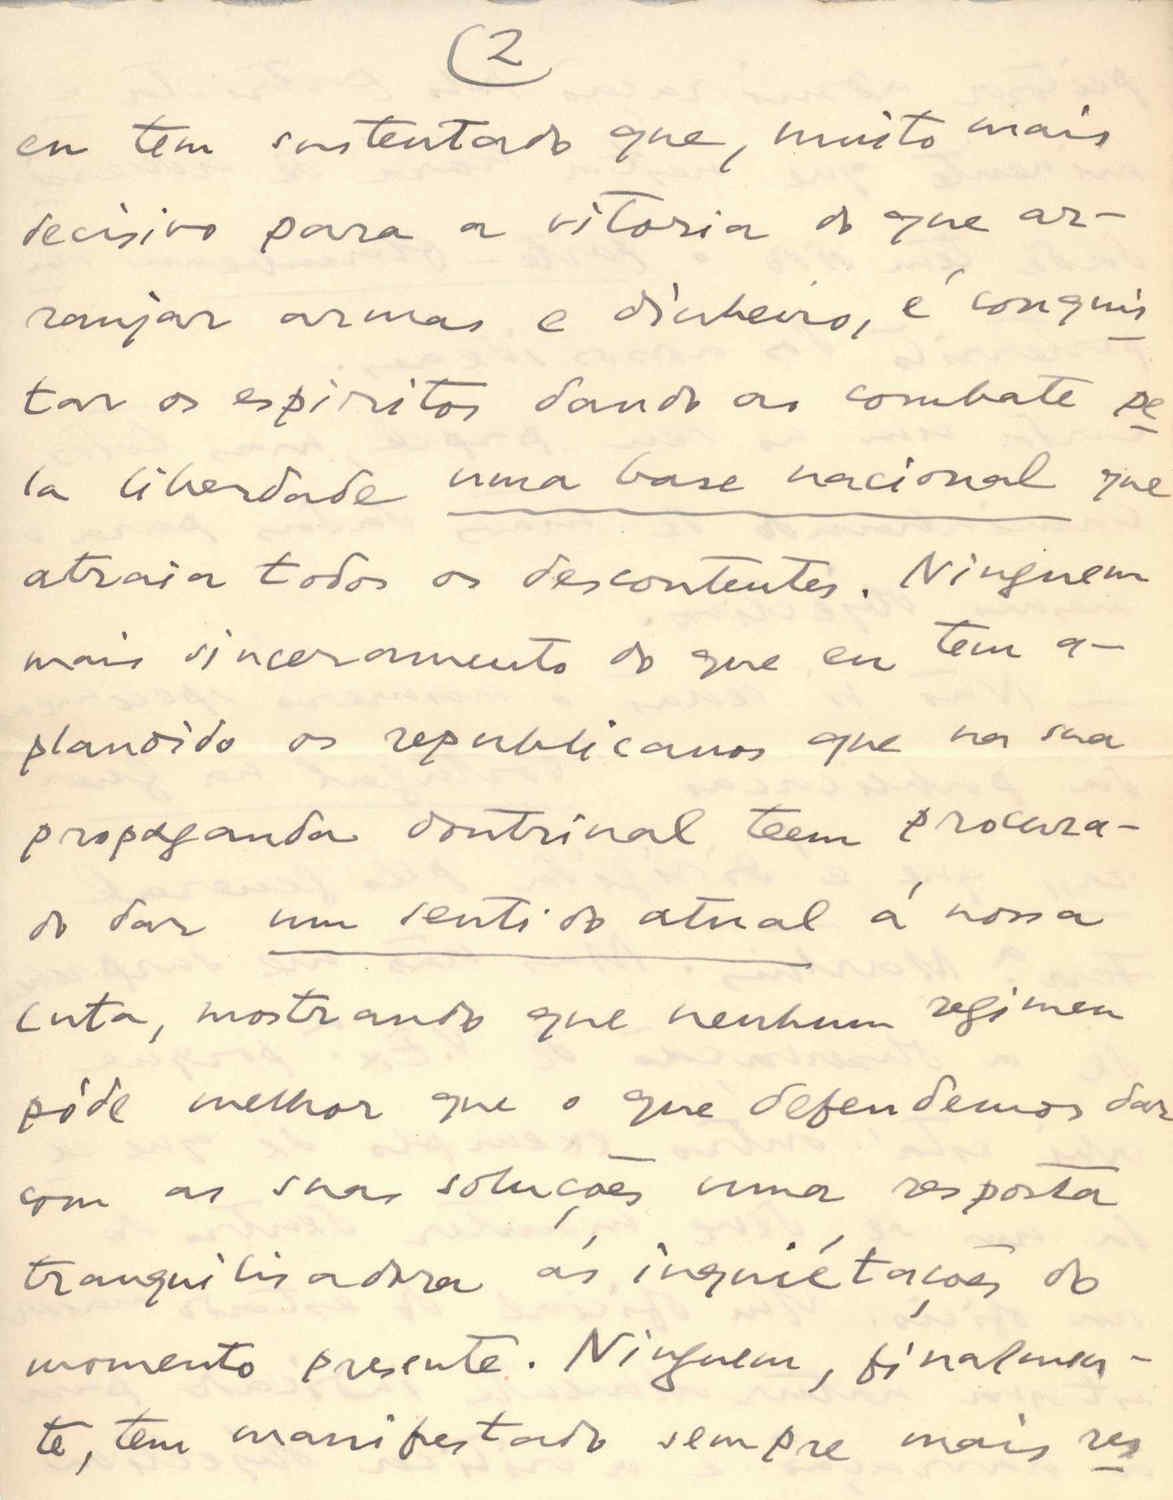 (2
eu tem sustentado que, muito mais
decisivo para a vitoria do que ar-
ranjar armas e dinheiro, é conquis
tar os espiritos dando ao combate pe
la liberdade uma base nacional que
atraia todos os descontentes. Ninguem
mais sinceramento do que eu tem a-
plaudido os republicanos que na sua
propaganda doutrinal teem procura-
do dar um sentido atual á nossa
luta, mostrando que nenhum regimen
póde melhor que o que defendemos dar
com as suas soluções uma resposta
tranquilisadora ás inquiétações do
momento presente. Ninguem, finalmen-
te, tem manifestado sempre mais res